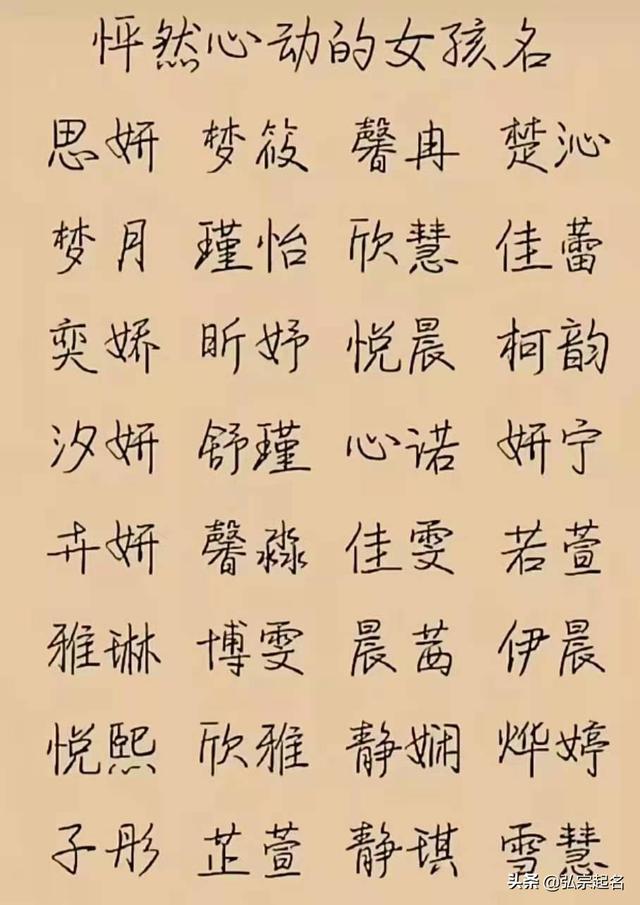 怦然心动的女孩名
思妍 梦筱 馨冉 楚沁
梦月 瑾怡 欣慧 佳蕾
奕娇 昕妤 悦晨 柯韵
汐妍 舒瑾 心诺 妍宁
卉妍 馨淼 佳雯 若萱
雅琳 博雯 晨茜 伊晨
悦熙 欣雅 静娴 烨婷
子彤 芷萱 静琪 雪慧
头条 @弘宗起名